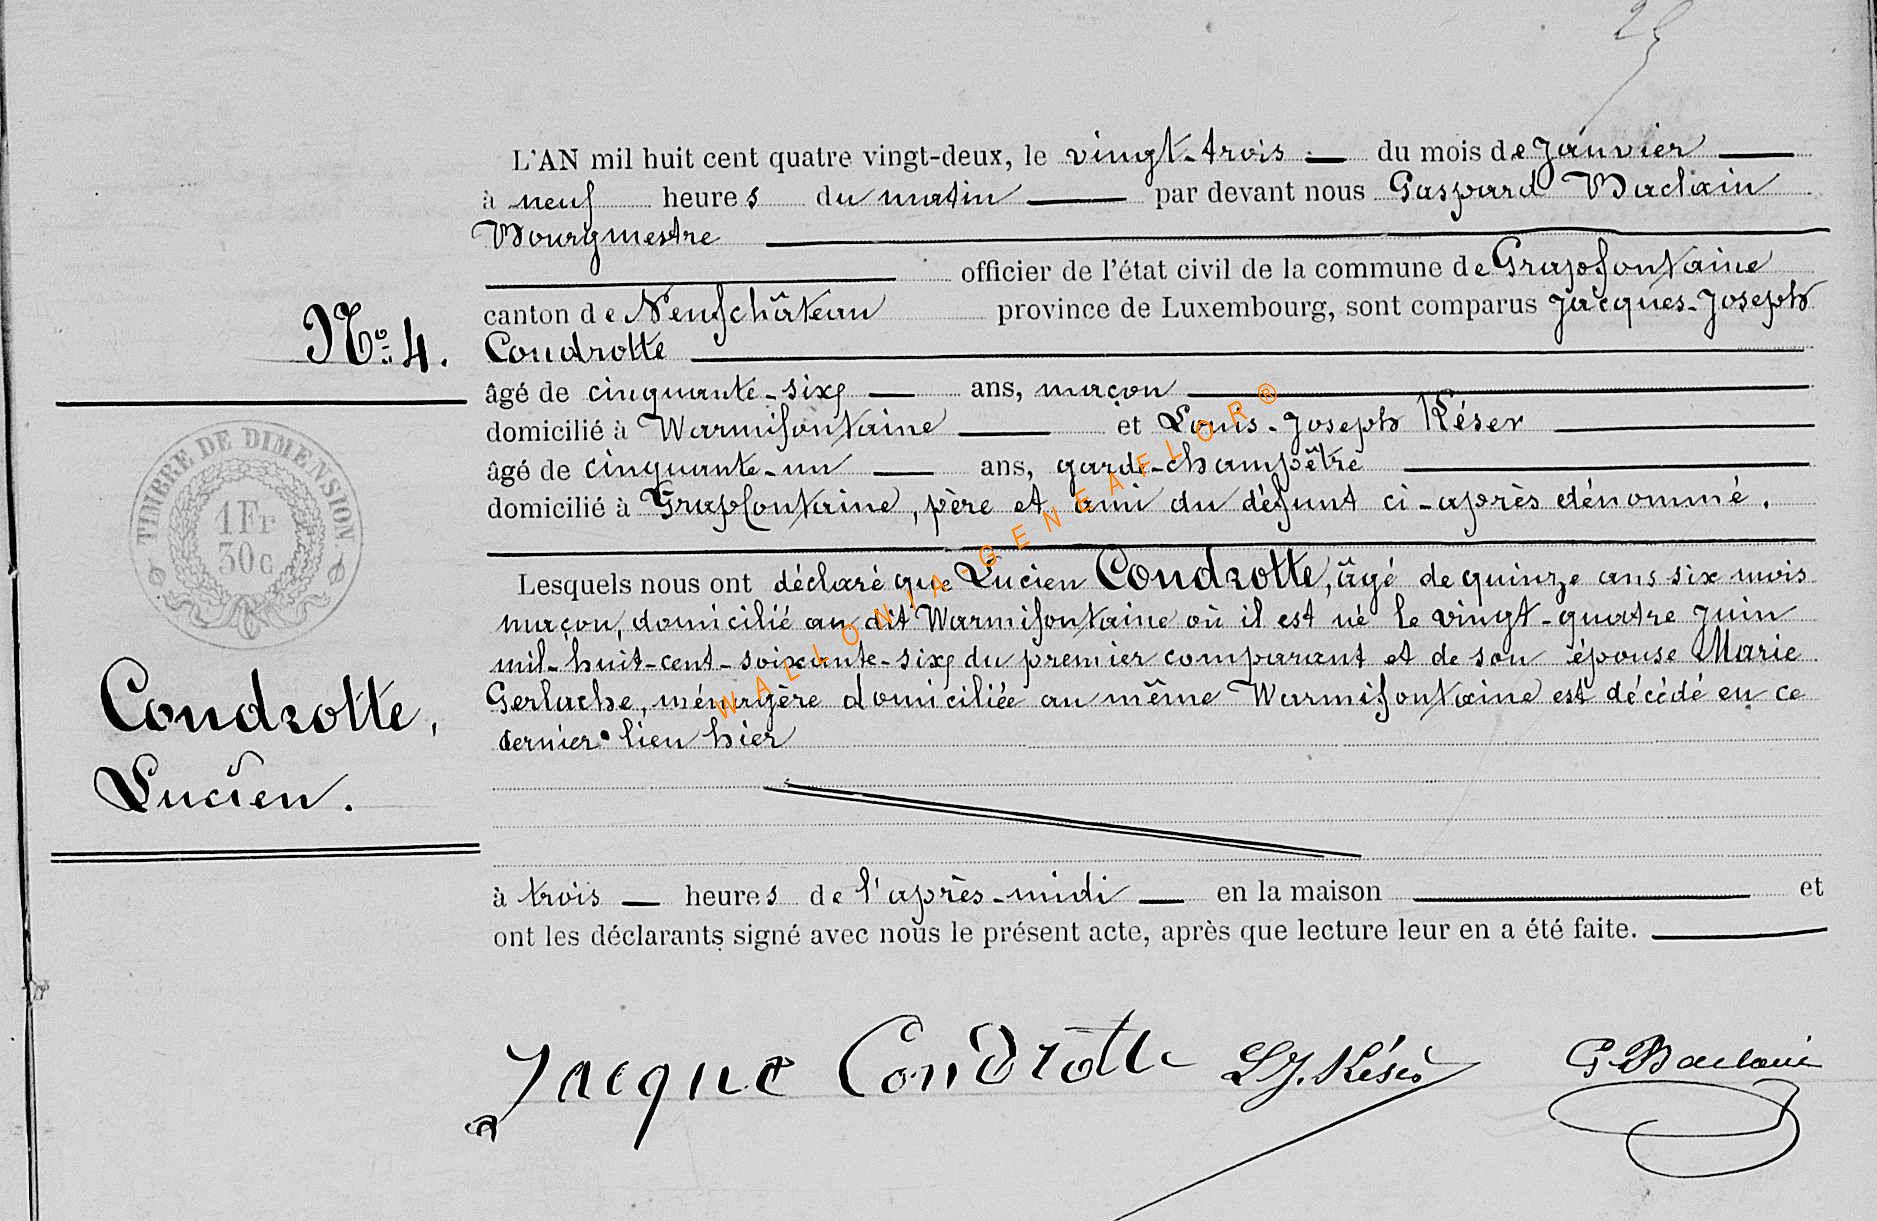 25
L'AN mil huit cent quatre vingt-deux, le vingt-trois du mois de Janvier
à neuf heures du matin par devant nous Gaspard Baclain
Bourgmestre
officier de l'état civil de la commune de Grapfontaine
canton de Neufchâteau province de Luxembourg, sont comparus Jacques-Joseph
Nº 4. Condrotte
âgé de cinquante-six ans, maçon
domicilié à Warmifontaine et Louis-Joseph Késer
âgé de cinquante-un ans, garde-champêtre
domicilié à Grapfontaine, père et ami du défunt ci-après dénommé.
TIMBRE DE DIMENSION
1 Fr
30 c
Lesquels nous ont déclaré que Lucien Condrotte, âgé de quinze ans six mois
maçon, domicilié au dit Warmifontaine où il est né le vingt-quatre Juin
mil-huit-cent-soixante-six du premier comparant et de son épouse Marie
Gerlache, ménagère domiciliée au même Warmifontaine est décédé en ce
dernier lieu hier
Condrotte,
Lucien.
à trois heures de l'après-midi en la maison et
ont les déclarants signé avec nous le présent acte, après que lecture leur en a été faite.
Jacque Condrotte L J. Késer G. Baclain
WALLONIA-GENEAFLOR®